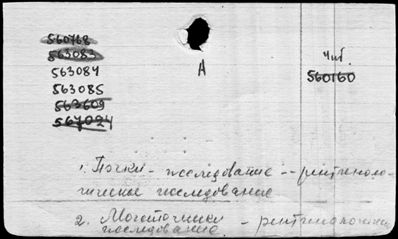 560768
563083
563084
563085
563609
567024
А
Чит.
560160
1. Почки - исследование -- рентгеноло-
гическое исследование
2. Мочеточники - рентгенологич.
исследование.